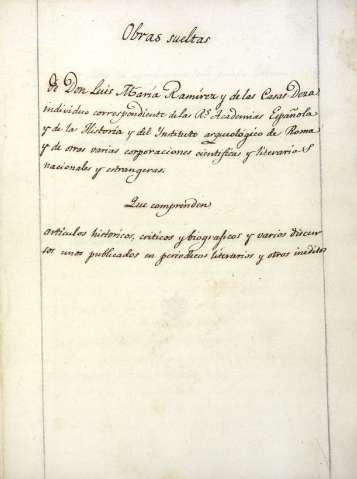 Obras sueltas
de Don Luis María Ramírez y de las Casas Deza
individuo correspondiente de las Rs. Academias Española
y de la Historia y del Instituto arqueológico de Roma
y de otras varias corporaciones científicas y literarias
nacionales y estrangeras.
Que comprenden
artículos históricos, críticos y biograficos y varios discur
sos unos publicados en periodicos literarios y otros ineditos